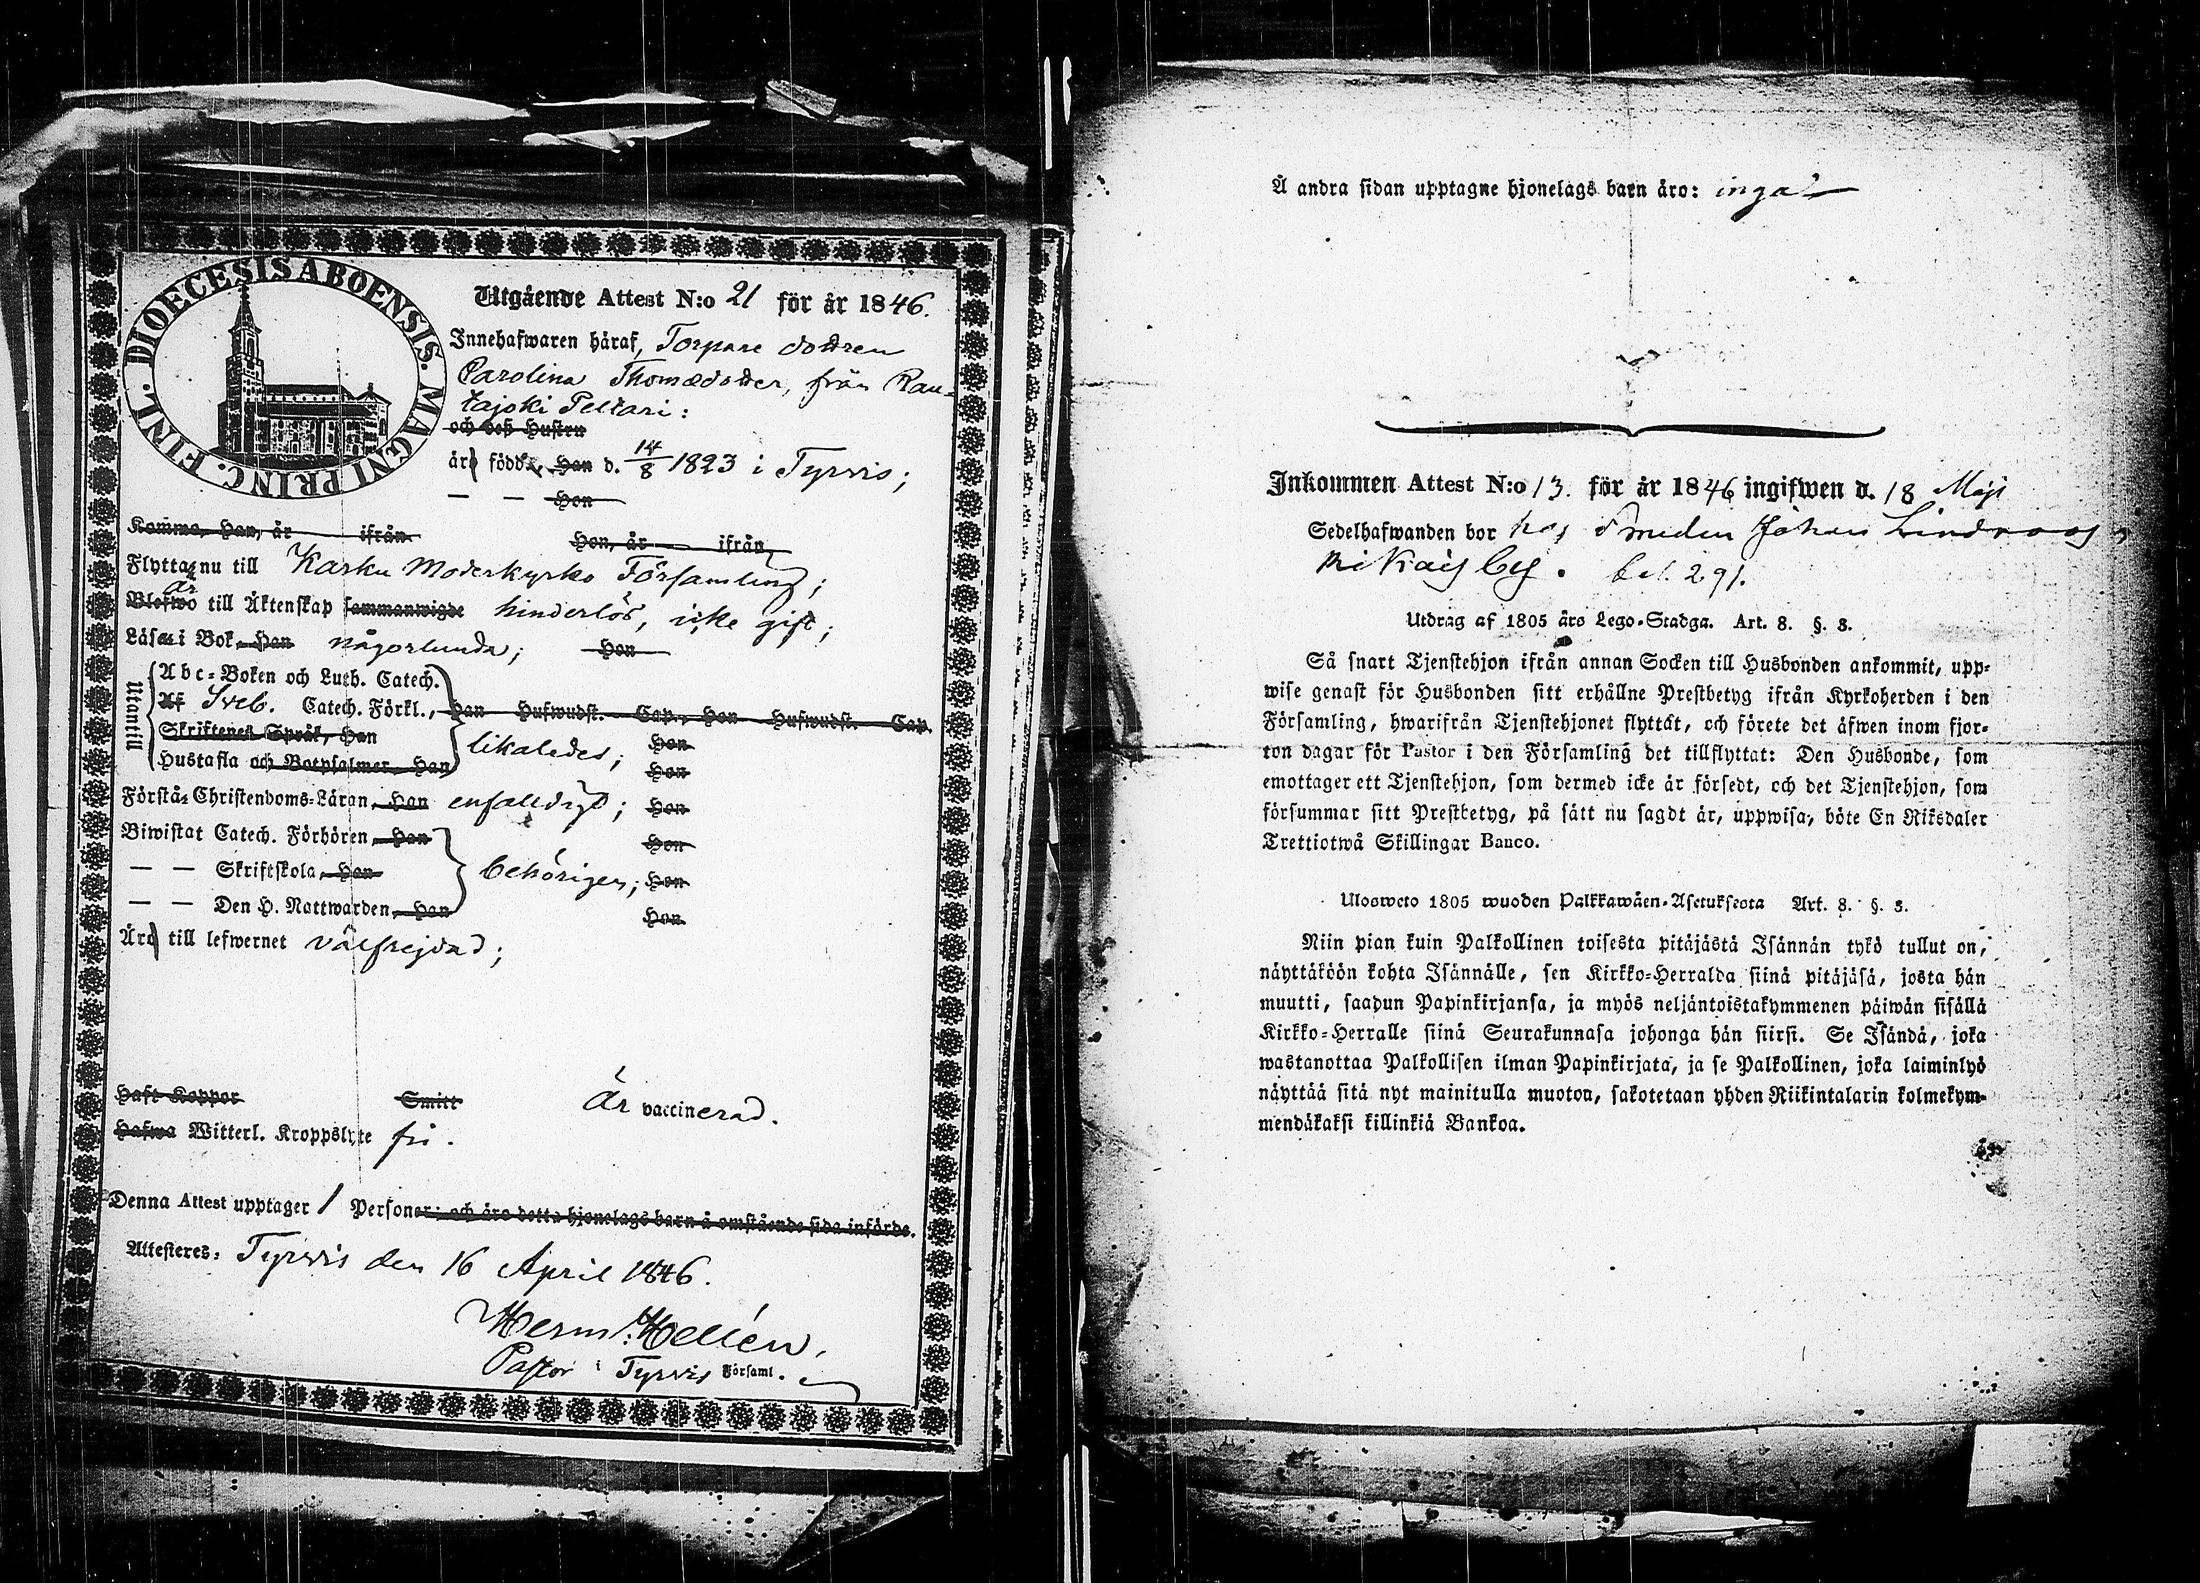 DIOECESIS ABOENSIS. MAGNI PRINC. FINL.
Utgående Attest N:o 21 för år 1846.
Innehafwaren häraf, Torpare dottren
Carolina Thomædotter, från Rau-
tajoki Peltari:
och deß Hustru
äro född, Han d. 14/8 1823 i Tyrvis;
— — Hon
Komme, Han, år ifrån Hon, år ifrån
Flytta nu till Karku Moderkyrko Församling;
är
Blefwo till Äktenskap sammanwigde hinderlös, icke gift;
Läsa i Bok, Han någorlunda; Hon
Utantill
Abc-Boken och Luth. Catech.
Af Sveb. Catech. Förkl., Han Hufwudst. Cap., Hon Hufwudst. Cap.
Skriftenes Språk, Han likaledes; Hon
Hustafla och Botpsalmer, Han Hon
Förstå Christendoms-Läran, Han enfaldigt; Hon
Biwistat Catech. Förhören, Han Hon
— — Skriftskola, Han behörigen; Hon
— — Den H. Nattwarden, Han Hon
Äro till lefwernet välfrejdad;
Haft Koppor Smitt Är vaccinerad.
Hafwa Witterl. Kroppslyte fri.
Denna Attest upptager 1 Personer; och äro detta hjonelags barn å omstående sida införde.
Attesteres: Tyrvis den 16 April 1846.
Herm: Hellén,
Pastor i Tyrvis Församl.
Å andra sidan upptagne hjonelags barn äro: inga
Inkommen Attest N:o 13. för år 1846 ingifwen d. 18 Maji
Sedelhafwanden bor hos Smeden Johan Lindroos,
Nikais by. 291.
Utdrag af 1805 års Lego-Stadga. Art. 8. §. 3.
Så snart Tjenstehjon ifrån annan Socken till Husbonden ankommit, upp-
wise genast för Husbonden sitt erhållne Prestbetyg ifrån Kyrkoherden i den
Församling, hwarifrån Tjenstehjonet flyttat, och förete det äfwen inom fjor-
ton dagar för Pastor i den Församling det tillflyttat: Den Husbonde, som
emottager ett Tjenstehjon, som dermed icke är försedt, och det Tjenstehjon, som
försummar sitt Prestbetyg, på sätt nu sagdt är, uppwisa, böte En Riksdaler
Trettiotwå Skillingar Banco.
Ulosweto 1805 wuoden Palkkawäen-Asetuksesta Art. 8. §. 3.
Niin pian kuin Palkollinen toisesta pitäjästä Isännän tykö tullut on,
näyttäköön kohta Isännälle, sen Kirkko-Herralda siinä pitäjäsä, josta hän
muutti, saadun Papinkirjansa, ja myös neljäntoistakymmenen päiwän sisällä
Kirkko-Herralle siinä Seurakunnasa johonga hän siirsi. Se Isändä, joka
wastanottaa Palkollisen ilman Papinkirjata, ja se Palkollinen, joka laiminlyö
näyttää sitä nyt mainitulla muoton, sakotetaan yhden Riikintalarin kolmekym-
mendäkaksi killinkiä Bankoa.